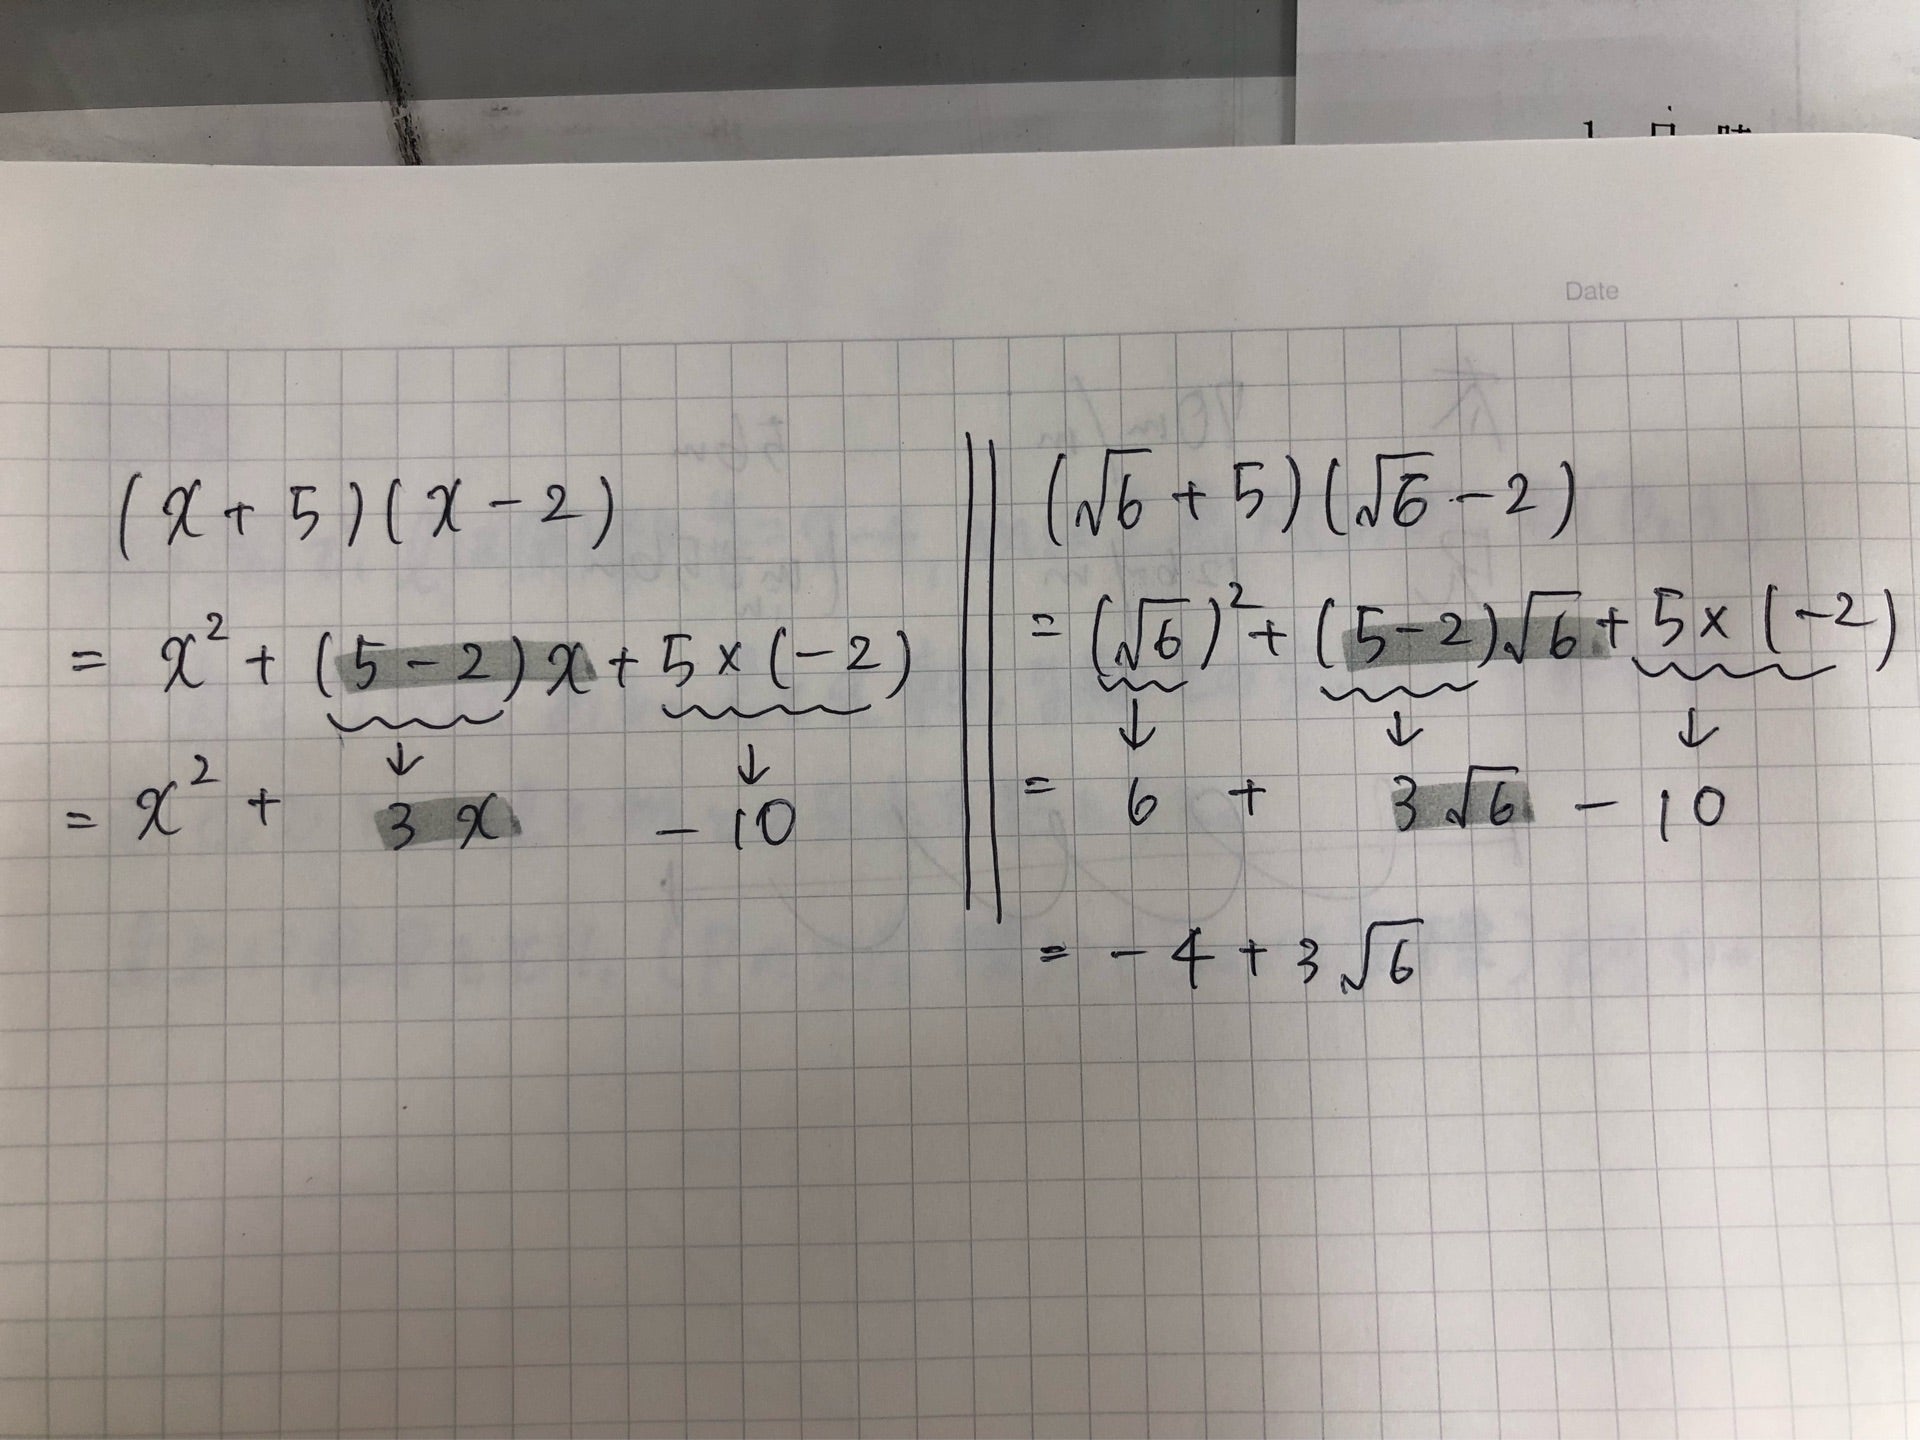 Date
(x+5)(x-2)
= x² + (5-2)x + 5×(-2)
↓ ↓
= x² + 3x - 10
(√6+5)(√6-2)
= (√6)² + (5-2)√6 + 5×(-2)
↓ ↓ ↓
= 6 + 3√6 - 10
= -4 + 3√6